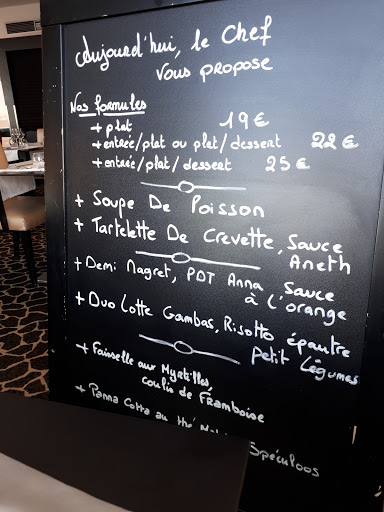 Aujourd'hui, le Chef
vous propose
Nos formules
+ plat 19€
+ entrée/plat ou plat/dessert 22€
+ entrée/plat/dessert 25€
+ Soupe De Poisson
+ Tartelette De Crevette, Sauce
Aneth
+ Demi Magret, PDT Anna Sauce
à l'orange
+ Duo Lotte Gambas, Risotto épautre
petit légumes
+ Faisselle aux Myrtilles,
coulis de Framboise
+ Panna Cotta au thé
Spéculoos